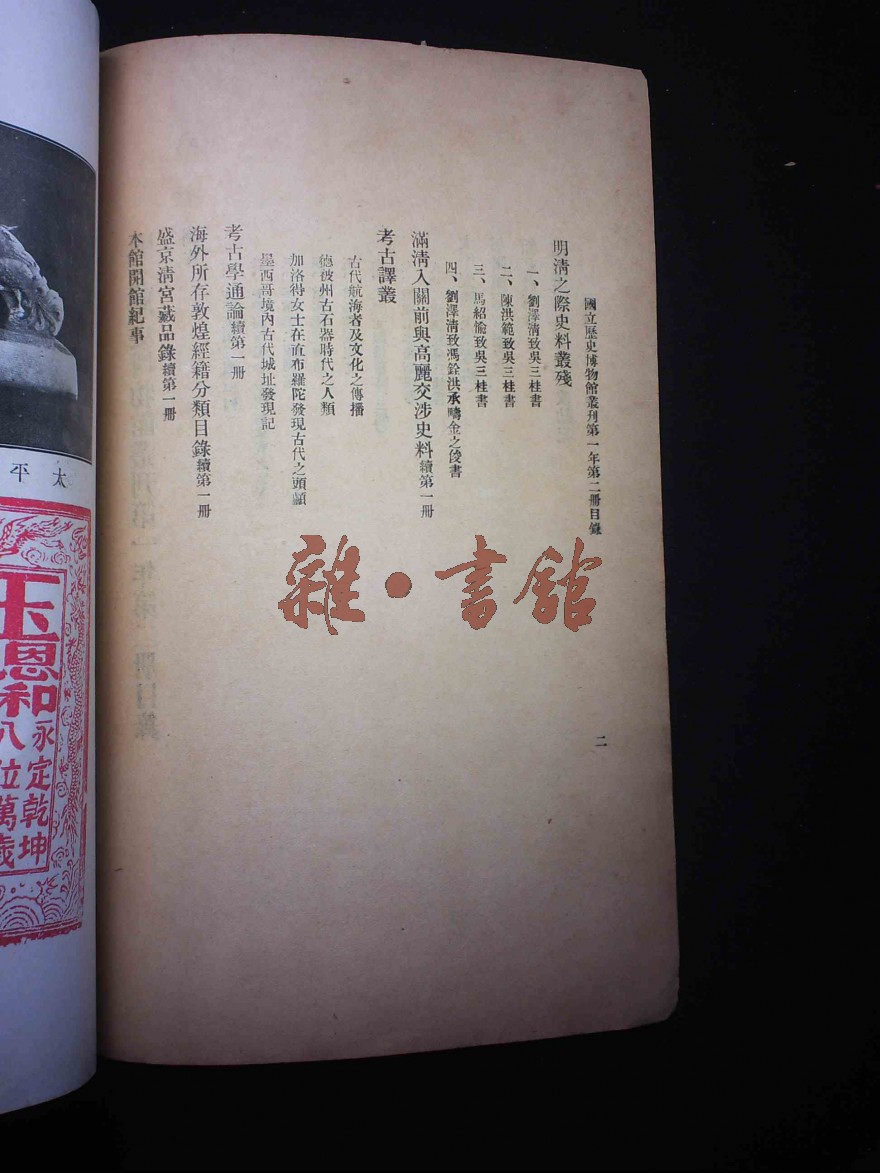 國立歷史博物館叢刊第一年第二冊目錄
明清之際史料叢殘
一、劉澤清致吳三桂書
二、陳洪範致吳三桂書
三、馬紹愉致吳三桂書
四、劉澤清致馮銓洪承疇金之俊書
滿清入關前與高麗交涉史料續第一冊
考古譯叢
古代航海者及文化之傳播
德波州古石器時代之人類
加洛得女士在直布羅陀發現古代之頭顱
墨西哥境內古代城址發現記
考古學通論續第一冊
海外所存敦煌經籍分類目錄續第一冊
盛京清宮藏品錄續第一冊
本館開館紀事
二
雜·書館
太平
玉
恩和
永定乾坤
八位萬歲